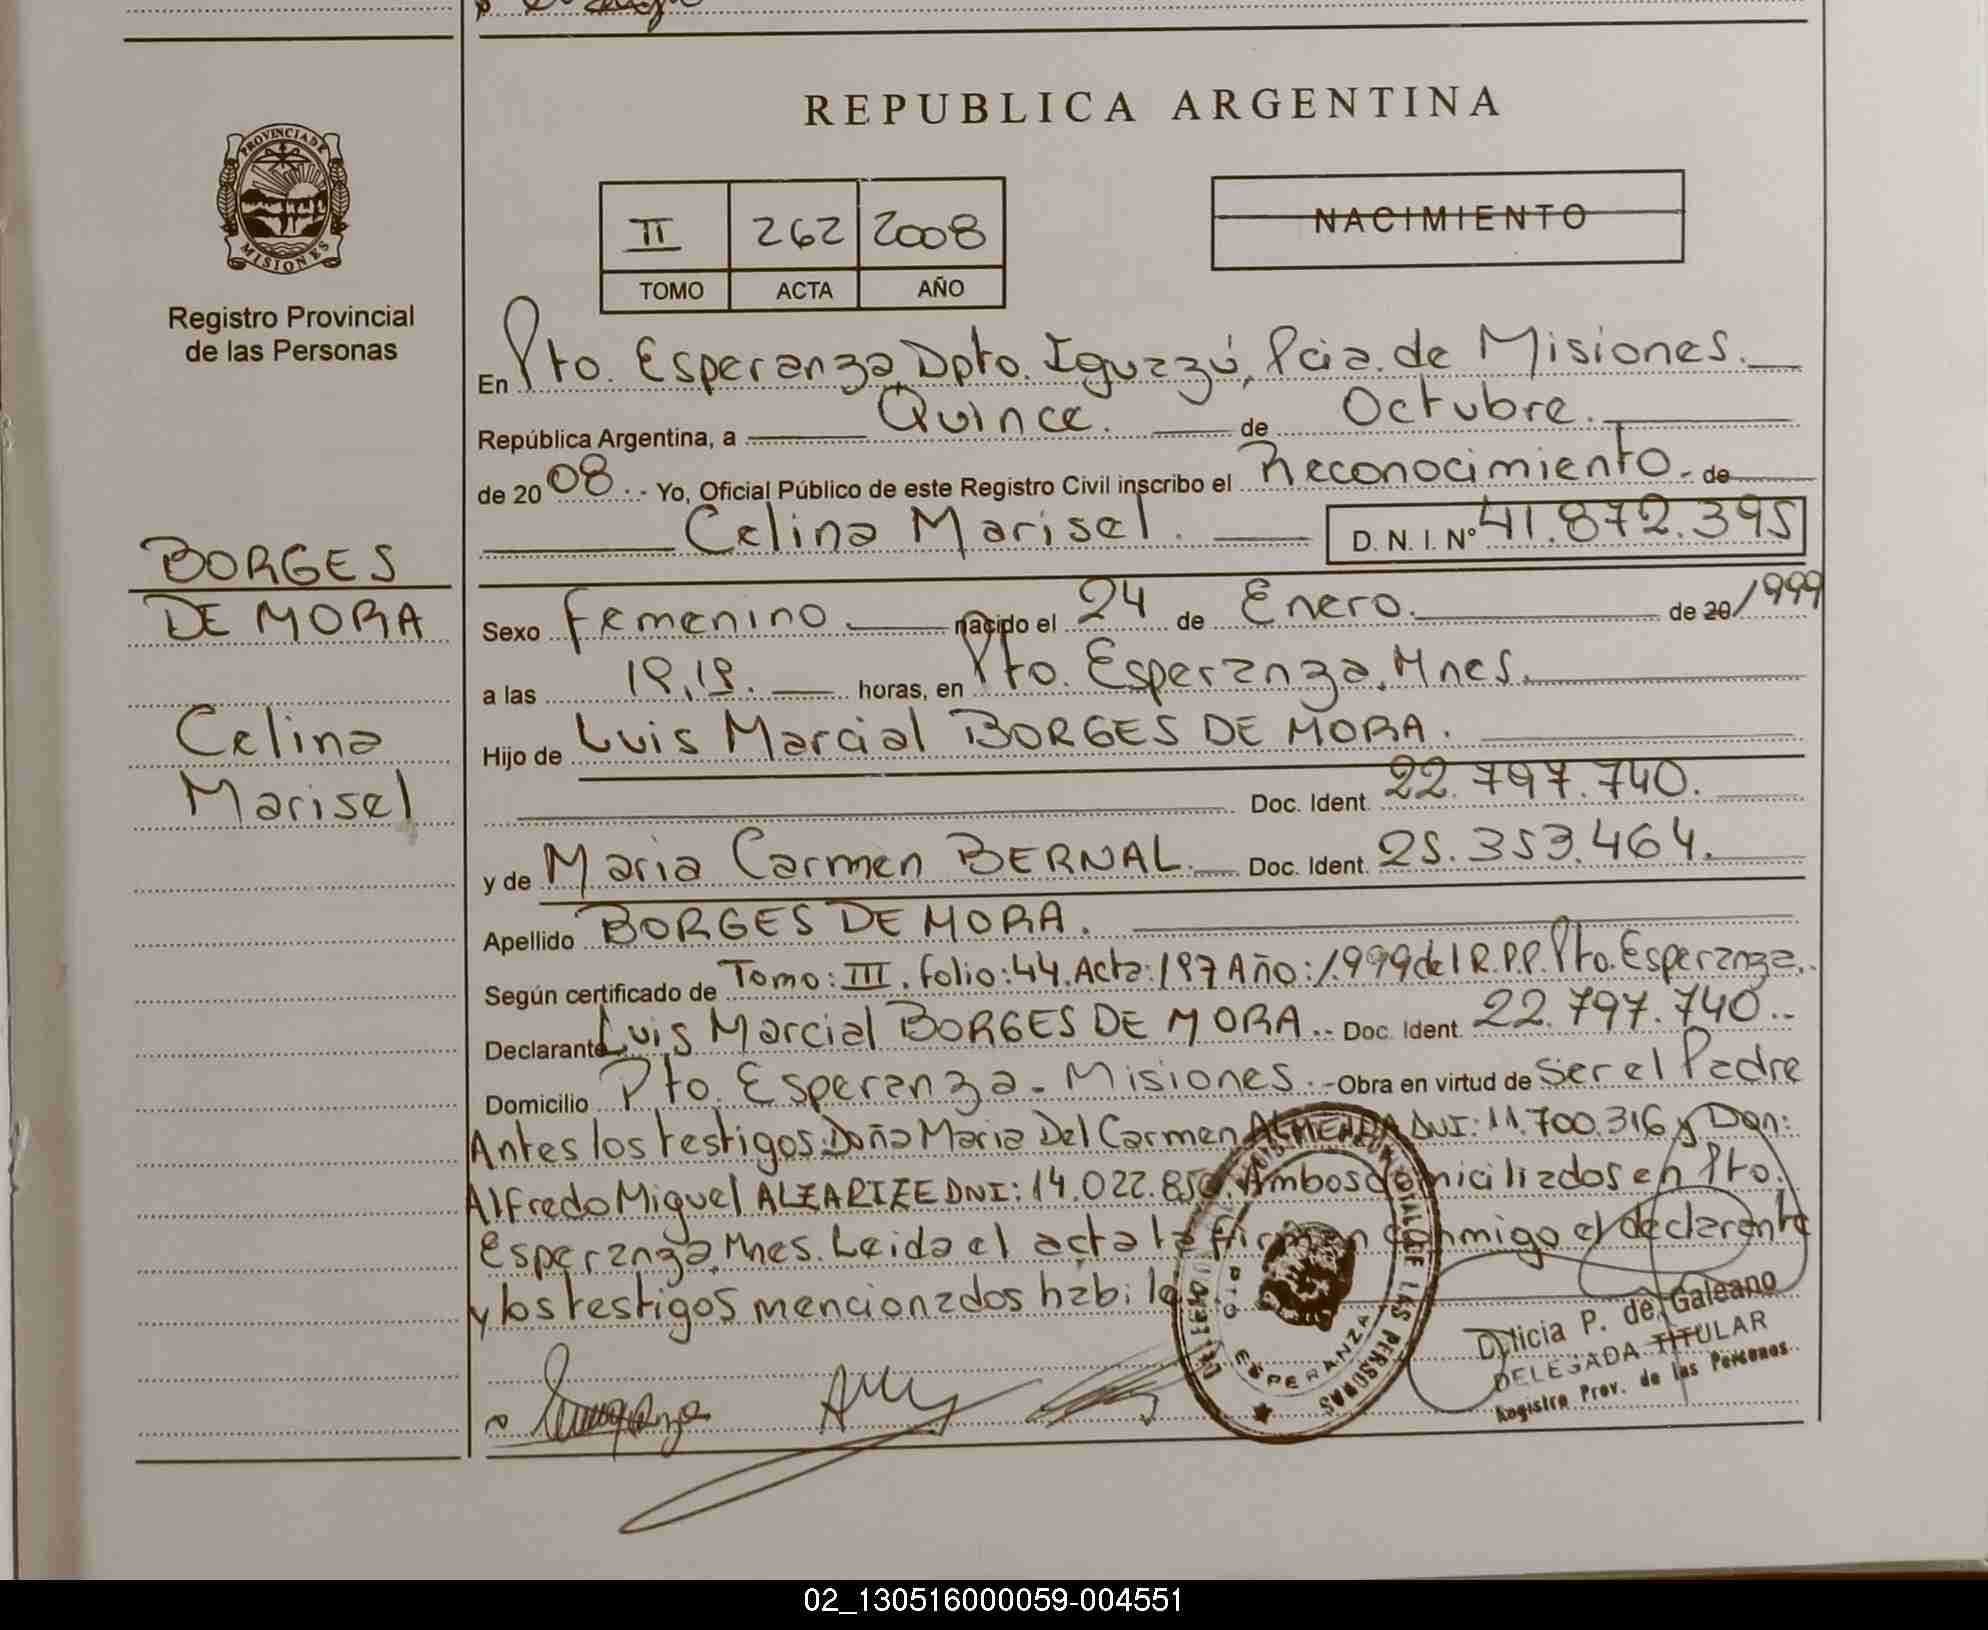 REPUBLICA ARGENTINA
PROVINCIA DE MISIONES
Registro Provincial
de las Personas
II 262 2008
TOMO ACTA AÑO
NACIMIENTO
En Pto. Esperanza Dpto. Iguazú, Pcia. de Misiones.
República Argentina, a Quince. de Octubre.
de 2008.- Yo, Oficial Público de este Registro Civil inscribo el Reconocimiento. de
Celina Marisel. D. N. I. Nº 41.872.395
BORGES
DE MORA
Celina
Marisel
Sexo Femenino nacido el 24 de Enero. de 20/1999
a las 19,15. horas, en Pto. Esperanza. Mnes.
Hijo de Luis Marcial BORGES DE MORA.
Doc. Ident. 22.797.740.
y de Maria Carmen BERNAL. Doc. Ident. 25.353.464.
Apellido BORGES DE MORA.
Según certificado de Tomo: III. Folio: 44. Acta: 197 Año: 1.999 del R.P.P. Pto. Esperanza.
Declarante Luis Marcial BORGES DE MORA.. Doc. Ident. 22.797.740..
Domicilio Pto. Esperanza - Misiones.- Obra en virtud de Ser el Padre
Antes los testigos: Doña Maria Del Carmen DNI: 11.700.316 y Don:
Alfredo Miguel DNI: 14.022.850. Ambos domicilizdos en Pto.
Esperanza, Mnes. Leida el acta la firman conmigo el declarante
y los testigos mencionados habiles.
PTO ESPERANZA
DE LAS PERSONAS
P. de Galeano
DELEGADA TITULAR
Registro Prov. de las Personas
02_130516000059-004551